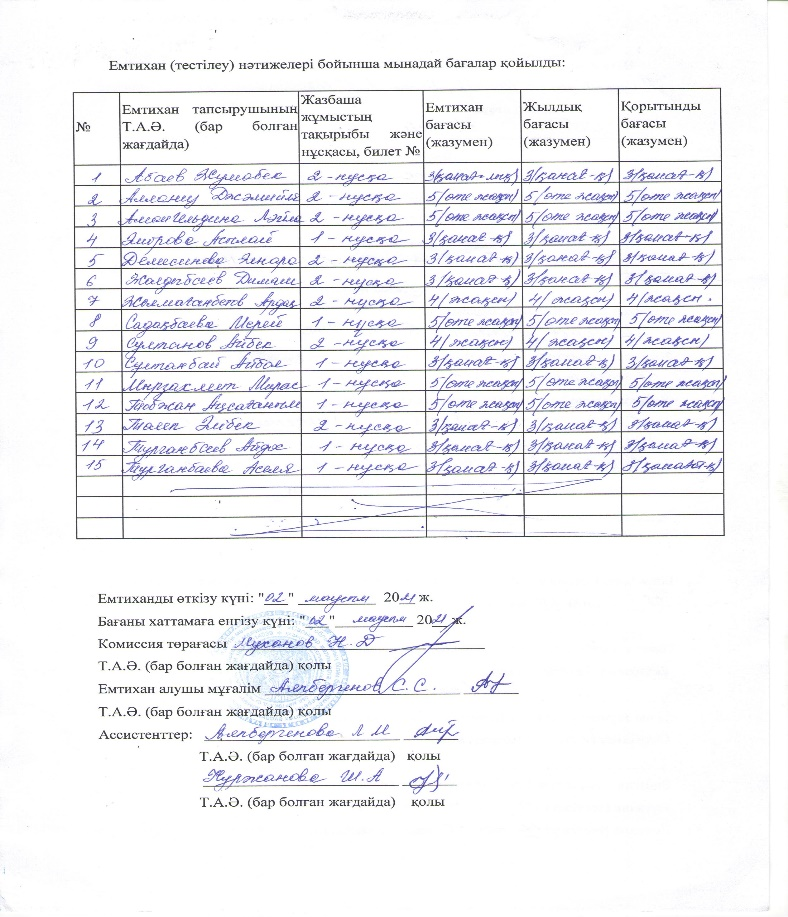 Емтихан (тестілеу) нәтижелері бойынша мынадай бағалар қойылды:
№ Емтихан тапсырушының Т.А.Ә. (бар болған жағдайда) Жазбаша жұмыстың тақырыбы және нұсқасы, билет № Емтихан бағасы (жазумен) Жылдық бағасы (жазумен) Қорытынды бағасы (жазумен)
1 Абаев Жұмабек 2 - нұсқа 3/қанағ-лық) 3/қанағ-қ) 3/қанағ-қ)
2 2 - нұсқа 5/өте жақсы) 5/өте жақсы) 5/өте жақсы)
3 Амангельдина 2 - нұсқа 5/өте жақсы) 5/өте жақсы) 5/өте жақсы)
4 1 - нұсқа 3/қанағ-қ) 3/қанағ-қ) 3/қанағ-қ)
5 2 - нұсқа 3/қанағ-қ) 3/қанағ-қ) 3/қанағ-қ)
6 2 - нұсқа 3/қанағ-қ) 3/қанағ-қ) 3/қанағ-қ)
7 2 - нұсқа 4/жақсы) 4/жақсы) 4/жақсы.
8 Садақбаева Мерей 1 - нұсқа 5/өте жақсы) 5/өте жақсы) 5/өте жақсы)
9 Султанов Айбек 2 - нұсқа 4/жақсы) 4/жақсы) 4/жақсы)
10 Султанбай 1 - нұсқа 3/қанағ-қ) 3/қанағ-қ) 3/қанағ-қ)
11 Мирас 1 - нұсқа 5/өте жақсы) 5/өте жақсы) 5/өте жақсы)
12 1 - нұсқа 5/өте жақсы) 5/өте жақсы) 5/өте жақсы)
13 Әлібек 2 - нұсқа 3/қанағ-қ) 3/қанағ-қ) 3/қанағ-қ)
14 Турганбаев 1 - нұсқа 3/қанағ-қ) 3/қанағ-қ) 3/қанағ-қ)
15 Турганбаева Аселя 1 - нұсқа 3/қанағ-қ) 3/қанағ-қ) 3/қанағат-қ)
Емтиханды өткізу күні: "02" маусым 2021 ж.
Бағаны хаттамаға енгізу күні: "02" маусым 2021 ж.
Комиссия төрағасы Муханов Н. Д
Т.А.Ә. (бар болған жағдайда) қолы
Емтихан алушы мұғалім Аяпбергенов С. С.
Т.А.Ә. (бар болған жағдайда) қолы
Ассистенттер: Аяпбергенова Л М
Т.А.Ә. (бар болған жағдайда) қолы
Нуржанова Ш. А
Т.А.Ә. (бар болған жағдайда) қолы